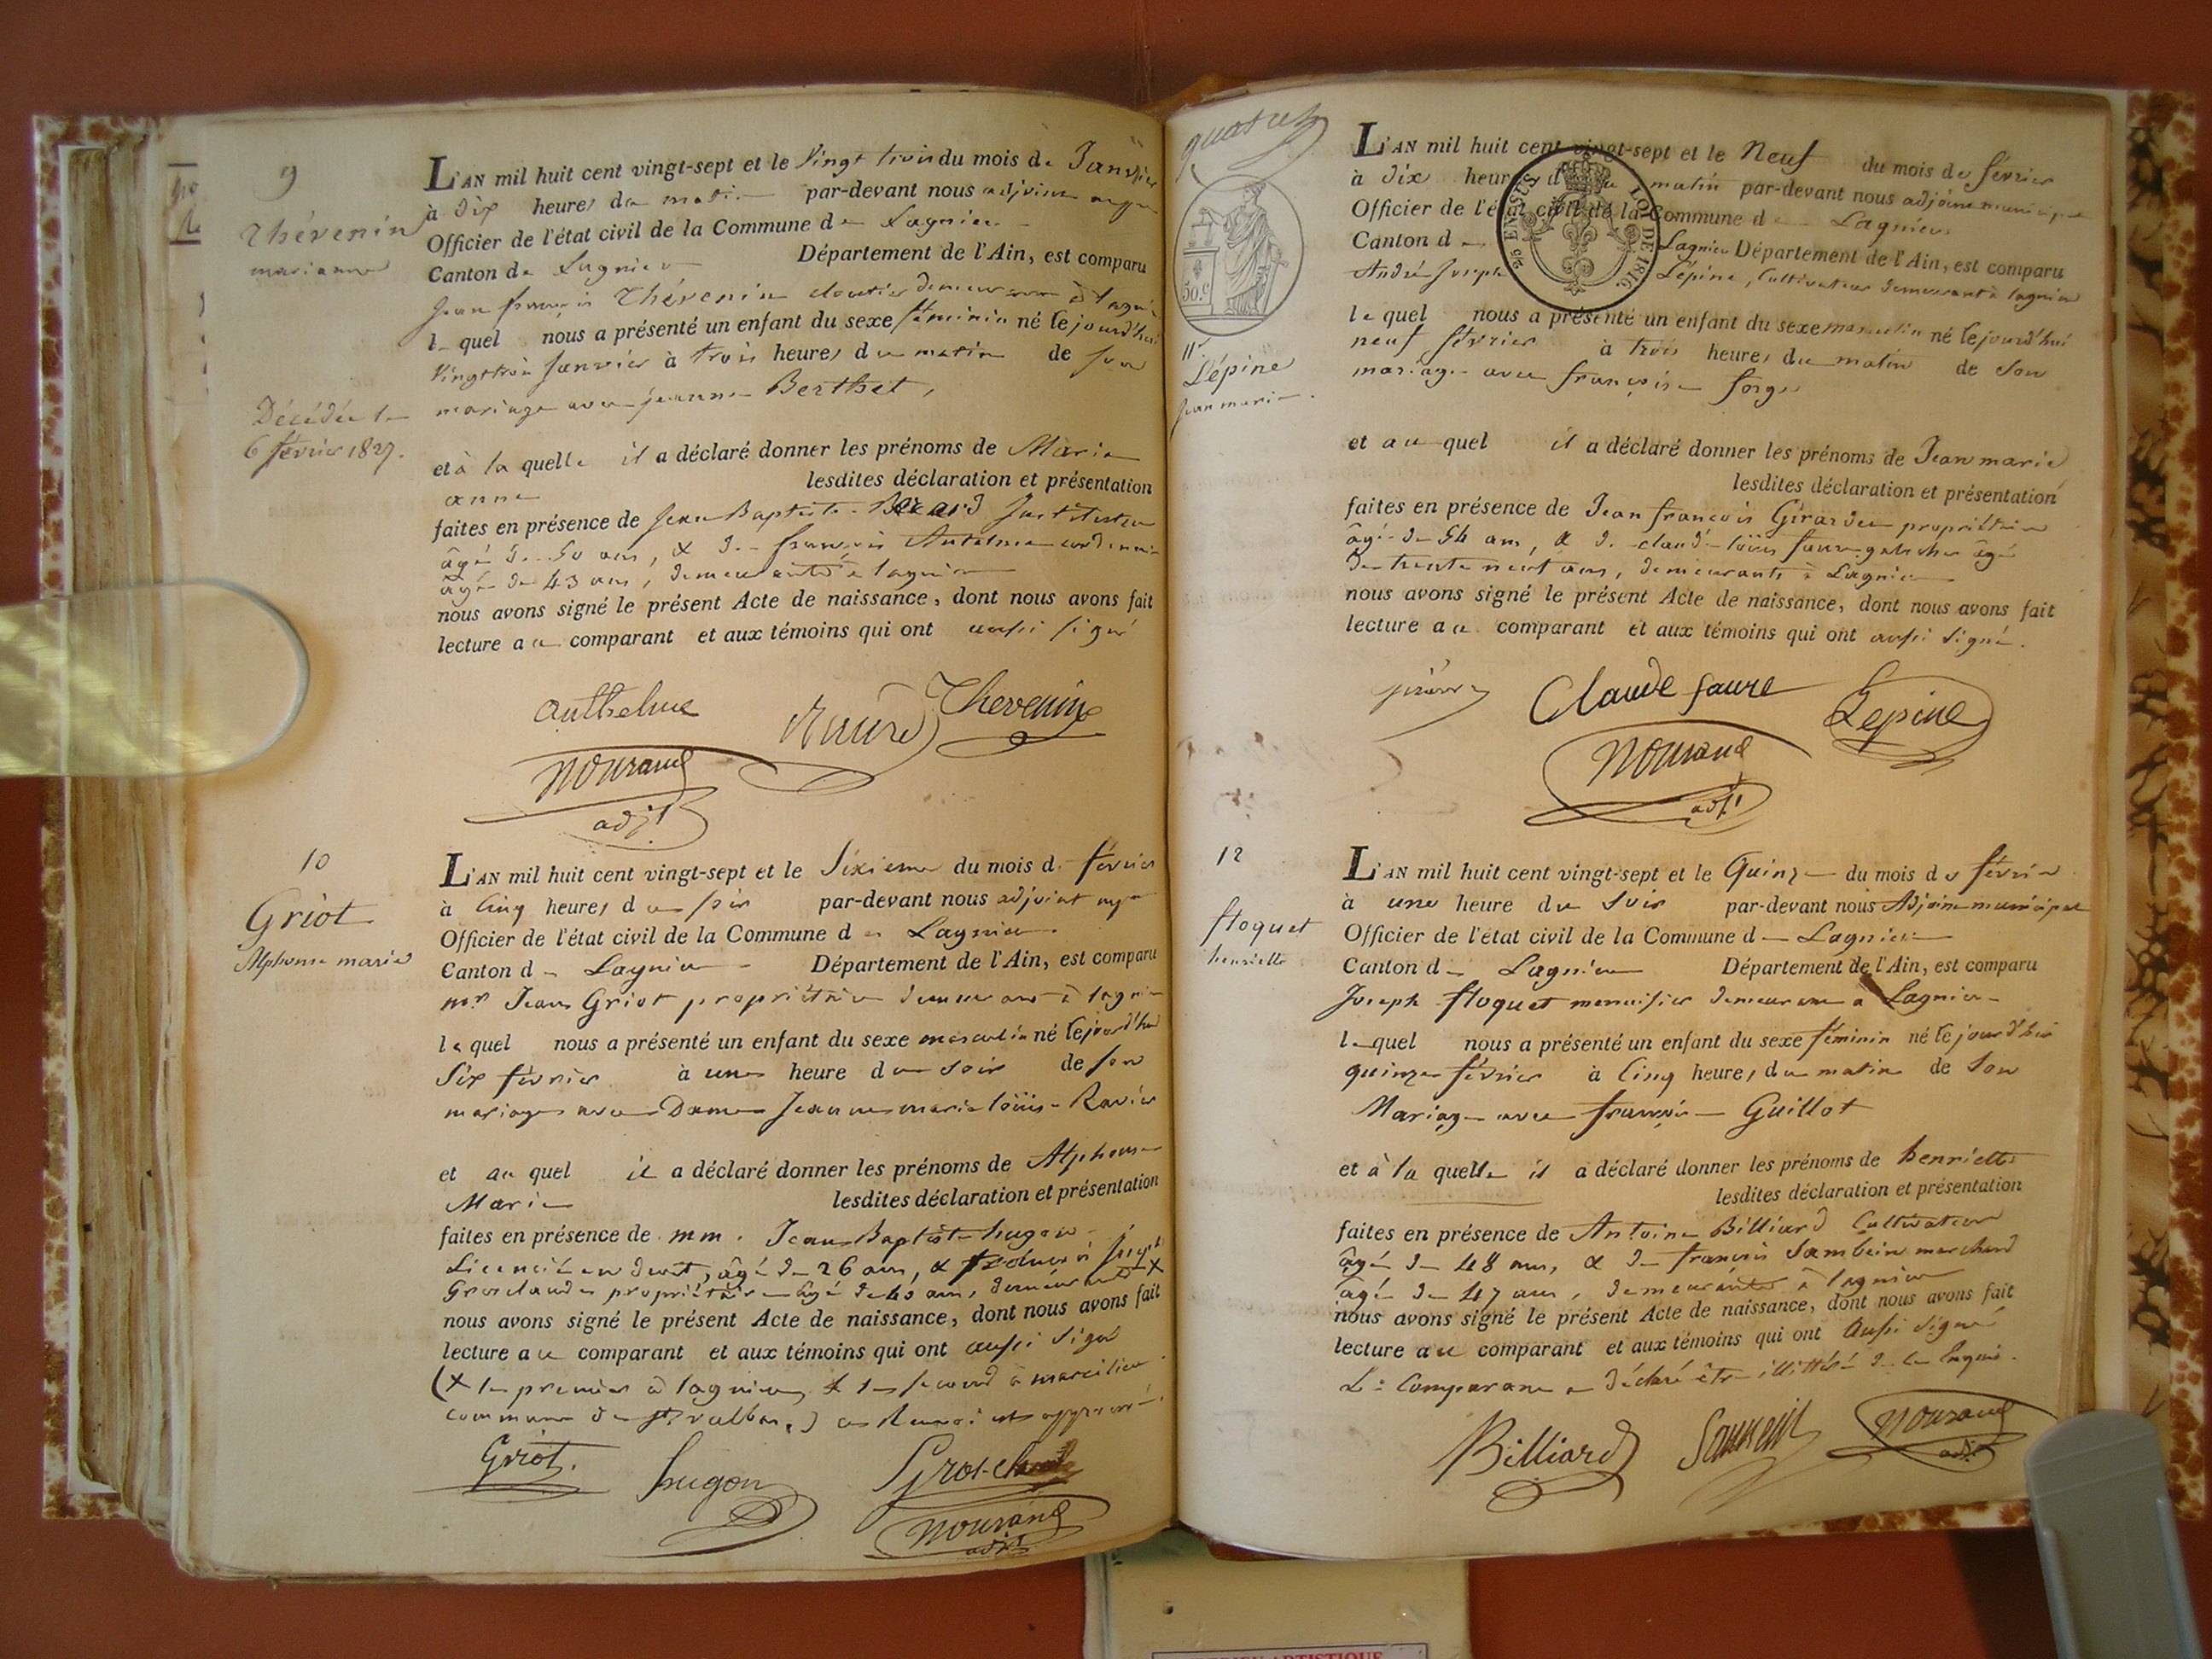 9
Thévenin
marianne
Décédée le
6 février 1827.
L'AN mil huit cent vingt-sept et le Vingt trois du mois de Janvier
à dix heures du matin par-devant nous adjoint
Officier de l'état civil de la Commune de Lagnieu
Canton de Lagnieu Département de l'Ain, est comparu
Jean françois Thévenin cloutier demeurant à lagnieu
lequel nous a présenté un enfant du sexe féminin né cejourd'hui
Vingttrois Janvier à trois heures du matin de son
mariage avec jeanne Berthet,
et à la quelle il a déclaré donner les prénoms de Marie
anne lesdites déclaration et présentation
faites en présence de Jean Baptiste Instituteur
âgé de 50 ans, & de françois Anthelme cordonnier
âgé de 43 ans, demeurants à lagnieu
nous avons signé le présent Acte de naissance, dont nous avons fait
lecture au comparant et aux témoins qui ont aussi signé
anthelme Thevenin
Mourand
adjt
10
Griot
Alphonse marie
L'AN mil huit cent vingt-sept et le Sixieme du mois de février
à Cinq heures du soir par-devant nous adjoint
Officier de l'état civil de la Commune de Lagnieu
Canton de Lagnieu Département de l'Ain, est comparu
mr. Jean Griot propriétaire demeurant à lagnieu
lequel nous a présenté un enfant du sexe masculin né cejourd'hui
Six février à une heure du soir de son
mariage avec Dame Jeanne marie loüise Ravier
et au quel il a déclaré donner les prénoms de Alphonse
Marie lesdites déclaration et présentation
faites en présence de mm. Jean Baptiste hugon
Licencié en droit, âgé de 26 ans, &
Grosclaude propriétaire âgé de 40 ans, demeurants X
nous avons signé le présent Acte de naissance, dont nous avons fait
lecture au comparant et aux témoins qui ont aussi signé
(X le premier à lagnieu, & le second à marcilieu
commune de St. valbas,) ce renvoi est approuvé.
Griot. hugon Gros-claude
Mourand
adjt
quatre
50.c
EN SUS LOI DE 1816.
11
Lépine
jean marie.
L'AN mil huit cent vingt-sept et le Neuf du mois de février
à dix heures du matin par-devant nous adjoint municipal
Officier de l'état civil de la Commune de Lagnieu
Canton de Lagnieu Département de l'Ain, est comparu
André Joseph Lépine, Cultivateur demeurant à lagnieu
lequel nous a présenté un enfant du sexe masculin né cejourd'hui
neuf février à trois heures du matin de son
mariage avec françoise forge
et au quel il a déclaré donner les prénoms de Jean marie
lesdites déclaration et présentation
faites en présence de Jean françois Girardee propriétaire
âgé de 54 ans, & de claude loüis faure âgé
de trente neuf ans, demeurants à Lagnieu
nous avons signé le présent Acte de naissance, dont nous avons fait
lecture au comparant et aux témoins qui ont aussi signé.
Claude faure Lepine
Mourand
adjt
12
floquet
henriette
L'AN mil huit cent vingt-sept et le Quinze du mois de février
à une heure du Soir par-devant nous Adjoint municipal
Officier de l'état civil de la Commune de Lagnieu
Canton de Lagnieu Département de l'Ain, est comparu
Joseph floquet menuisier demeurant à Lagnieu
lequel nous a présenté un enfant du sexe féminin né cejourd'hui
quinze février à Cinq heures du matin de son
Mariage avec françoise Guillot
et à la quelle il a déclaré donner les prénoms de henriette
lesdites déclaration et présentation
faites en présence de Antoine Billiard Cultivateur
âgé de 48 ans, & de françois marchand
âgé de 47 ans, demeurants à lagnieu
nous avons signé le présent Acte de naissance, dont nous avons fait
lecture au comparant et aux témoins qui ont aussi signé
Le Comparant a déclaré être illittéré de ce enquis.
Billiard Mourand
adjt
ARTISTIQUE